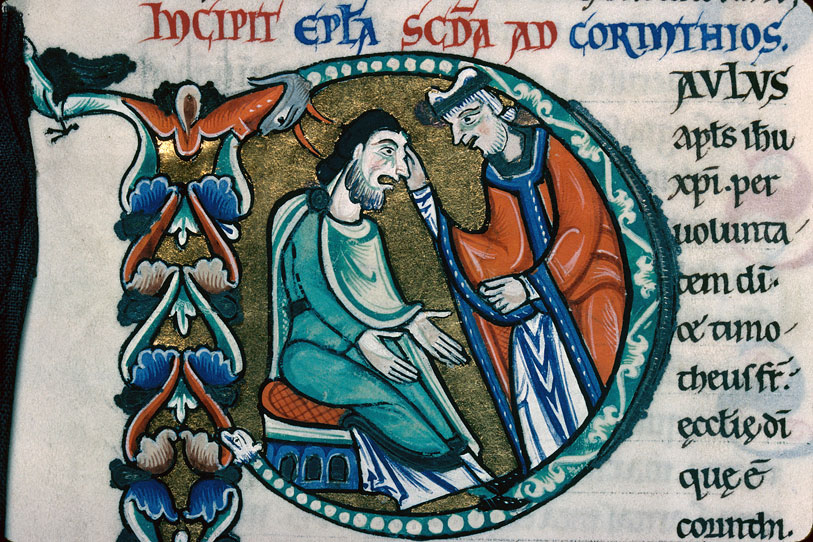 INCIPIT EPLA SCDA AD CORINTHIOS.
AVLVS
apłs ihu
xp̄i. per
uolunta
tem dī.
& timo
theus fr̄.
ęcclię dī
quę ē
corinthi.